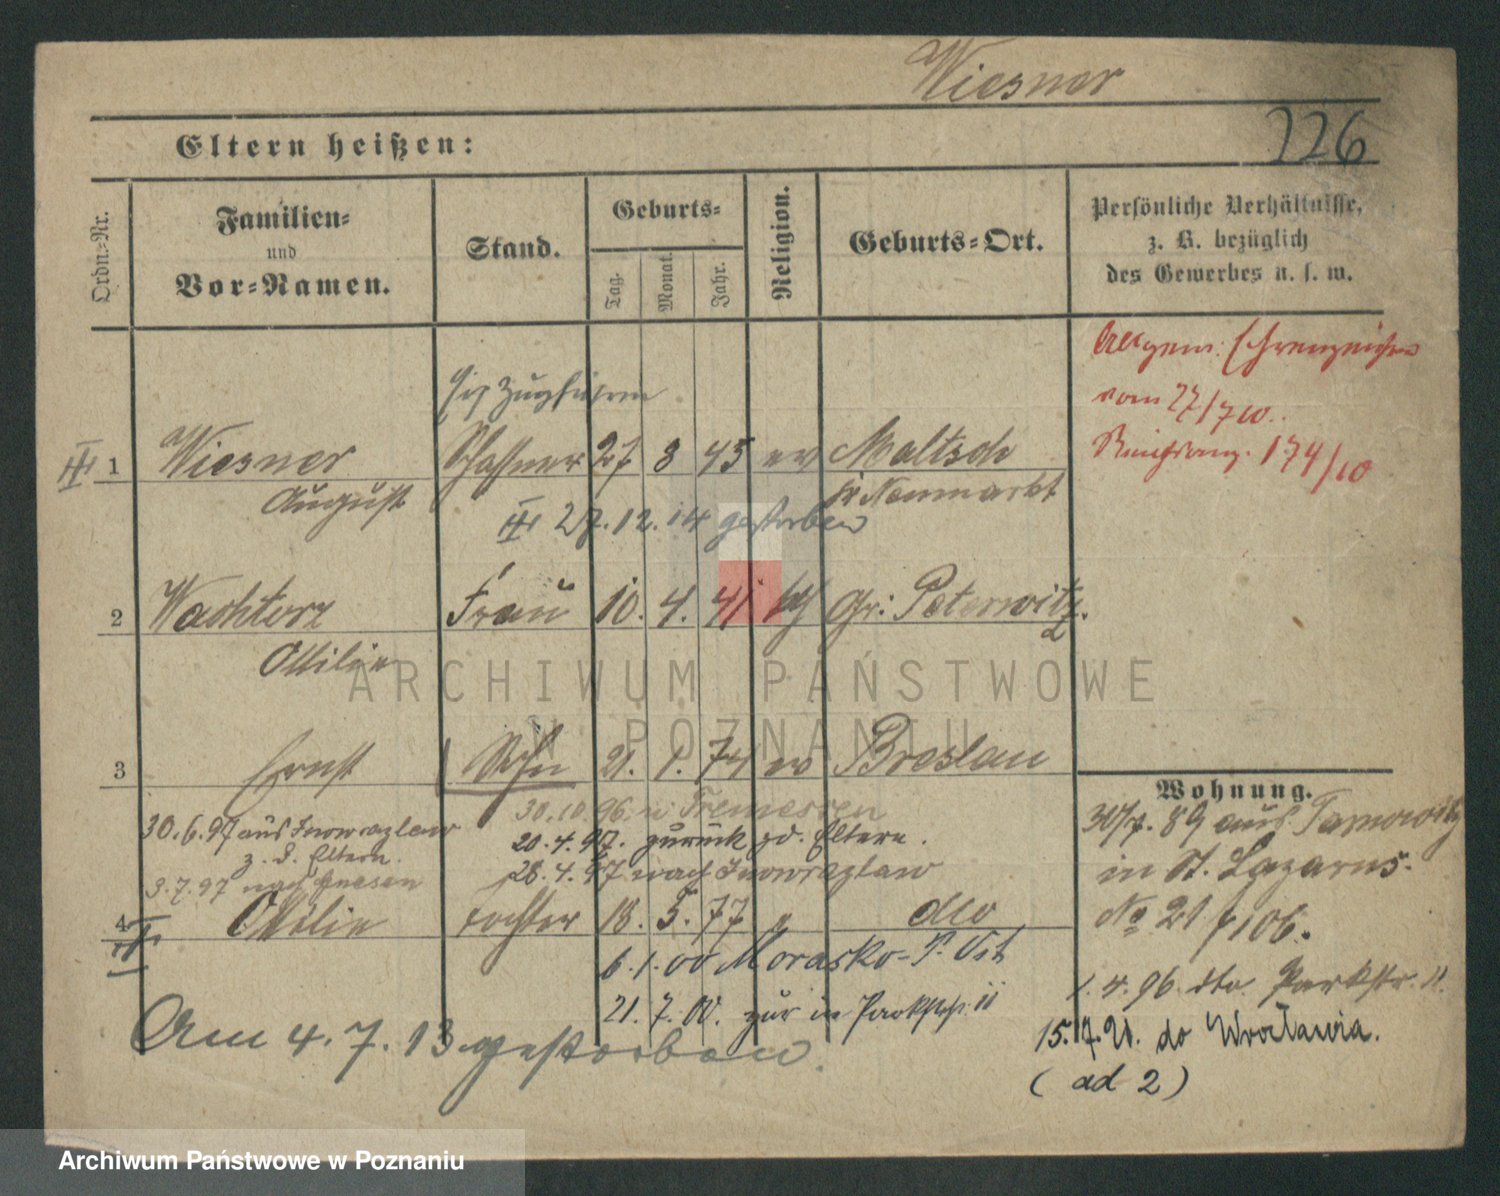 Wiesner
226
Eltern heißen:
Ordn.-Nr.
Familien-
und
Vor-Namen.
Stand.
Geburts-
Tag.
Monat.
Jahr.
Religion.
Geburts-Ort.
Persönliche Verhältnisse,
z. B. bezüglich
des Gewerbes u. s. w.
Allgem: Ehrenzeichen
vom 27/7 10.
174/10
Zugführer
III 1 Wiesner Schaffner 27 8 45 ev Maltsch
August Kr Neumarkt
III 27.12.14 gestorben
2 Wachterz Frau 10. 4. 41 kth Gr: Peterwitz.
Ottilie
3 Ernst Sohn 21. 1. 74 ev Breslau
Wohnung.
30/7. 89 aus Tarnowitz
in St. Lazarus.
No 21 106.
1.4.96. dto. Parkstr. 11.
15.7.21. do Wrocławia.
(ad 2)
30.10.96. n Tremessen
30.6.97 aus Inowrazlaw 20.4.97. zurück zd. Eltern.
z. d. Eltern.
3.7.97 nach Gnesen 28.4.97 nach Inowrazlaw
4 Ottilie tochter 18. 5. 77 " dto
III
6.1.00 Morasko
21.7.00. zur in Parkstr. 11
Am 4.7.13 gestorben.
ARCHIWUM PAŃSTWOWE
W POZNANIU
Archiwum Państwowe w Poznaniu